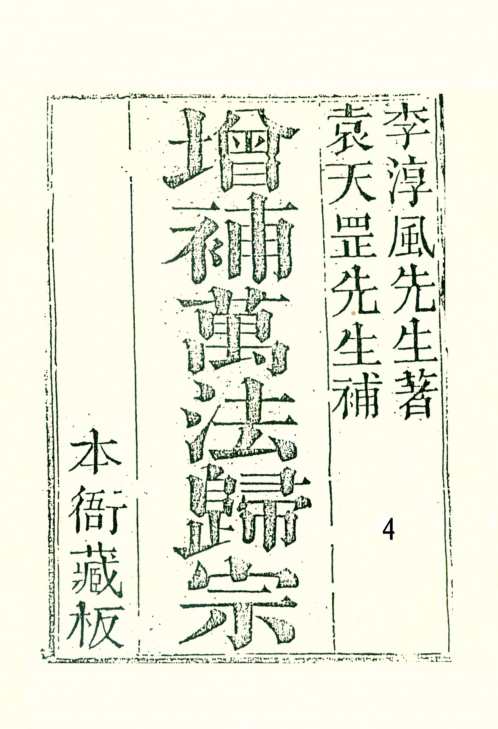 李淳風先生著
袁天罡先生補
4
增補萬法歸宗
本衙藏板